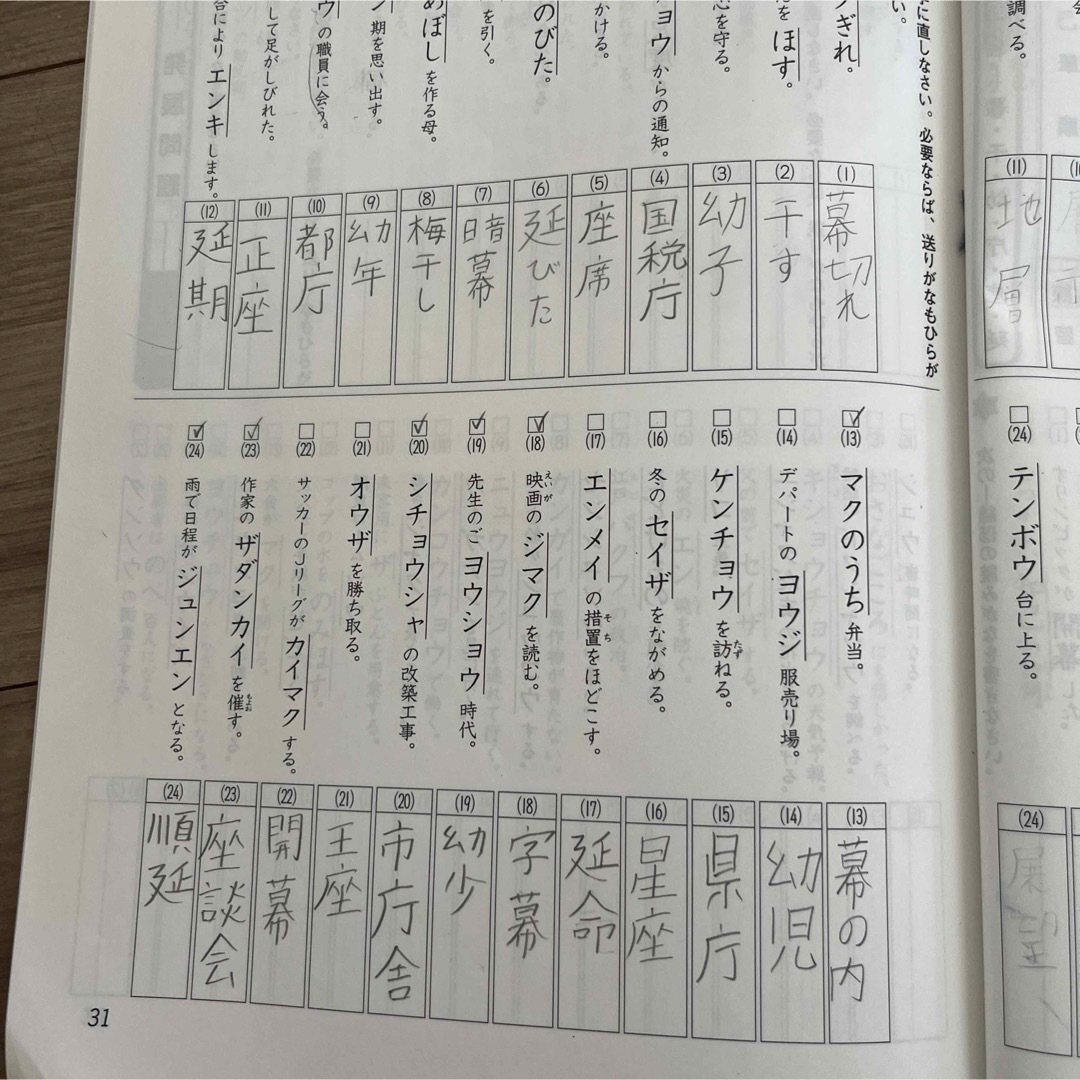 調べる。
(11)
地層
(24)
テンボウ台に上る。
(24)
展望
に直しなさい。必要ならば、送りがなもひらが
ぎれ。
ほす。
を守る。
ョウからの通知。
かける。
のびた。
を引く。
めぼしを作る母。
期を思い出す。
ウの職員に会う。
して足がしびれた。
合によりエンキします。
(1)
幕切れ
(2)
干す
(3)
幼子
(4)
国税庁
(5)
座席
(6)
延びた
(7)
暗幕
(8)
梅干し
(9)
幼年
(10)
都庁
(11)
正座
(12)
延期
(13) マクのうち弁当。
(14) デパートのヨウジ服売り場。
(15) ケンチョウを訪ねる。
たず
(16) 冬のセイザをながめる。
(17) エンメイの措置をほどこす。
そち
(18) 映画のジマクを読む。
えいが
(19) 先生のごヨウショウ時代。
(20) シチョウシャの改築工事。
(21) オウザを勝ち取る。
(22) サッカーのJリーグがカイマクする。
(23) 作家のザダンカイを催す。
もよお
(24) 雨で日程がジュンエンとなる。
(13)
幕の内
(14)
幼児
(15)
県庁
(16)
星座
(17)
延命
(18)
字幕
(19)
幼少
(20)
市庁舎
(21)
王座
(22)
開幕
(23)
座談会
(24)
順延
31